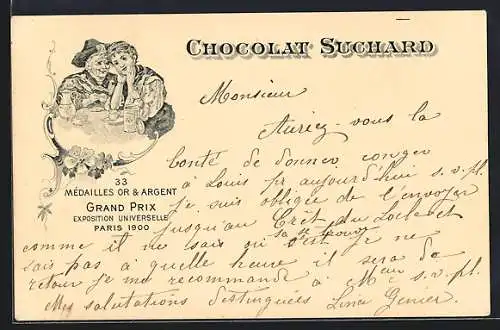 CHOCOLAT SUCHARD
33
MÉDAILLES OR & ARGENT
GRAND PRIX
EXPOSITION UNIVERSELLE
PARIS 1900
Monsieur
Auriez-vous la
bonté de donner conger
à Louis pr aujourd'hui s.v.pl.
je suis obligée de l'envoyer
jusqu'au Crêt du Locle et
comme il ne sait où sa se trouve
c'est je ne
sais pas à quelle heure il sera de
retour je me recommande à Mr s.v.pl.
Mes salutations distinguées Lina Genier.